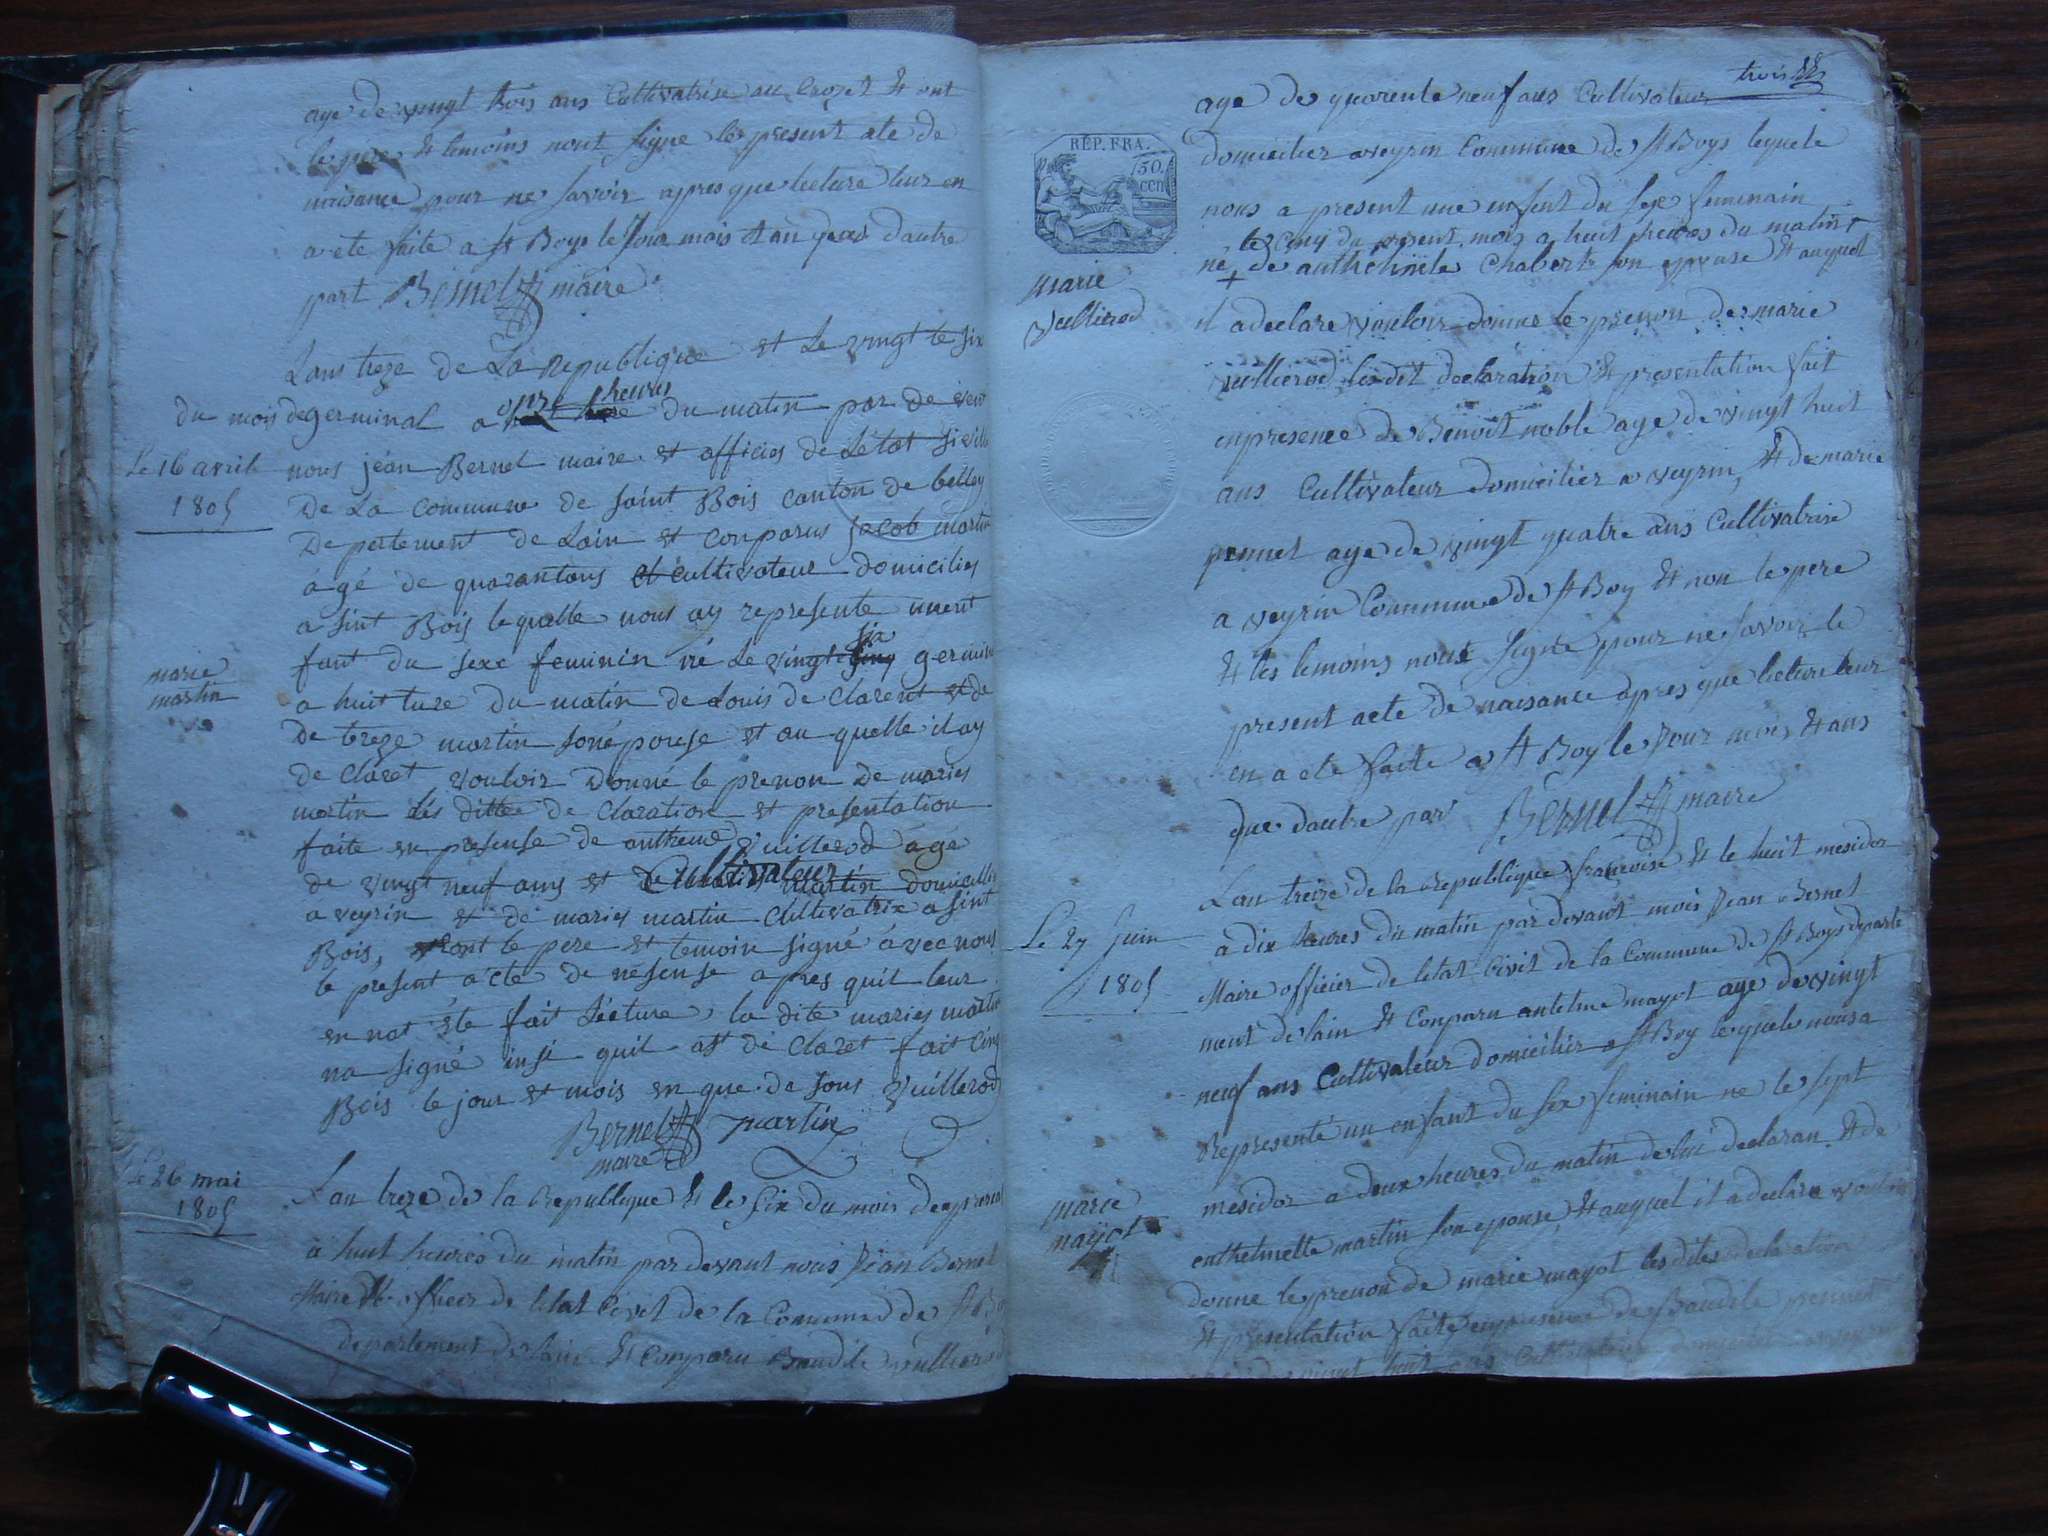 age de vingt trois ans Cultivatrise au Crozet & ont
le pere & temoins nont signe le present ate de
naisance pour ne savoir apres que lecture leur en
a ete faite a St Boys le Jour mois & an que d'autre
part Bernel maire
Lans treze de La Republique et Le vingt te six
du mois de germinal a onz heures du matin par de ven
Le 16 avril
1805
nous jéan Bernel maire et officies de Létat sivile
De La Commune de saint Bois canton de belley
Departement de Lain et conparus Jacob martin
ágé de quarantans cultivateur domicilies
a sint Bois lequelle nous ay represente unent
fant du sexe feminin né Le vingt six germin
marie
martin
a huit ture du matin de Louis de Clarent et de
De treze martin soné pouse et au quelle il ay
de Claret vouloir donné le prenon De maries
martin lés dittes de Claration et presentation
faite en presense de antheme Vuillerod ágé
de vingt neuf ans et Cultivateur domicillie
a veyrin et de maries martin Cultivatrix a sint
Bois, et ont le pere et temoin signé ávec nous
le present ácte de nesense apres quil leur
en nat éte fait Lécture, la dite maries martin
na signé insi quil at de Claret fait Cint
Bois le jour et mois en que de sous Vuillerod
Bernel martin
maire
Le 26 mai
1805
Lan treze de la Republique & le six du mois de prereal
a huit heures du matin par devant nous Jean Bernel
Maire & officier de letat Civil de la Commune de St Bo
departement de lain & Conparu Baudile vullierod
trois
age de quarente neuf ans Cultivateur
domicilier a veyrin Commune de St Boys lequele
REP. FRA.
50.
cen
nous a present une enfent du sexe feminain
le cinq du present mois a huit heures du matin +
né + de anthelmele Chabert son epouse & auquel
marie
vullierod
il a declare vouloir donne le prenon de marie
vullierod les dit declaration & presentation fait
en presence de Benoit noble age de vingt huit
ans Cultivateur domicilier a veyrin, & de marie
pennet age de vingt quatre ans Cultivatrise
a veyrin Commune de St Boy & non le pere
& les temoins nout signe pour ne savoir le
present acte de naisance apres que lecture leur
en a ete faite a St Boy le Jour mois & ans
que dautre par Bernel maire
Lan treize de la Republique francoise & le huit mesidor
a dix heures du matin par devant mois Jean Bernel
Le 27 Juin
1805
Maire officier de letat Civil de la Commune de St Boys departe
ment de lain & Conparu antelme mayot age de vingt
neuf ans Cultivateur domicilier a St Boy lequele nous a
Represente un enfant du sex feminain ne le sept
mesidor a deux heures du matin de lui declaran & de
marie
mayot
enthelmette martin son epouse, & auquel il a declare vouloir
donne le prenon de marie mayot les dites declaration
& presentation faite en presence de Baudile pennet